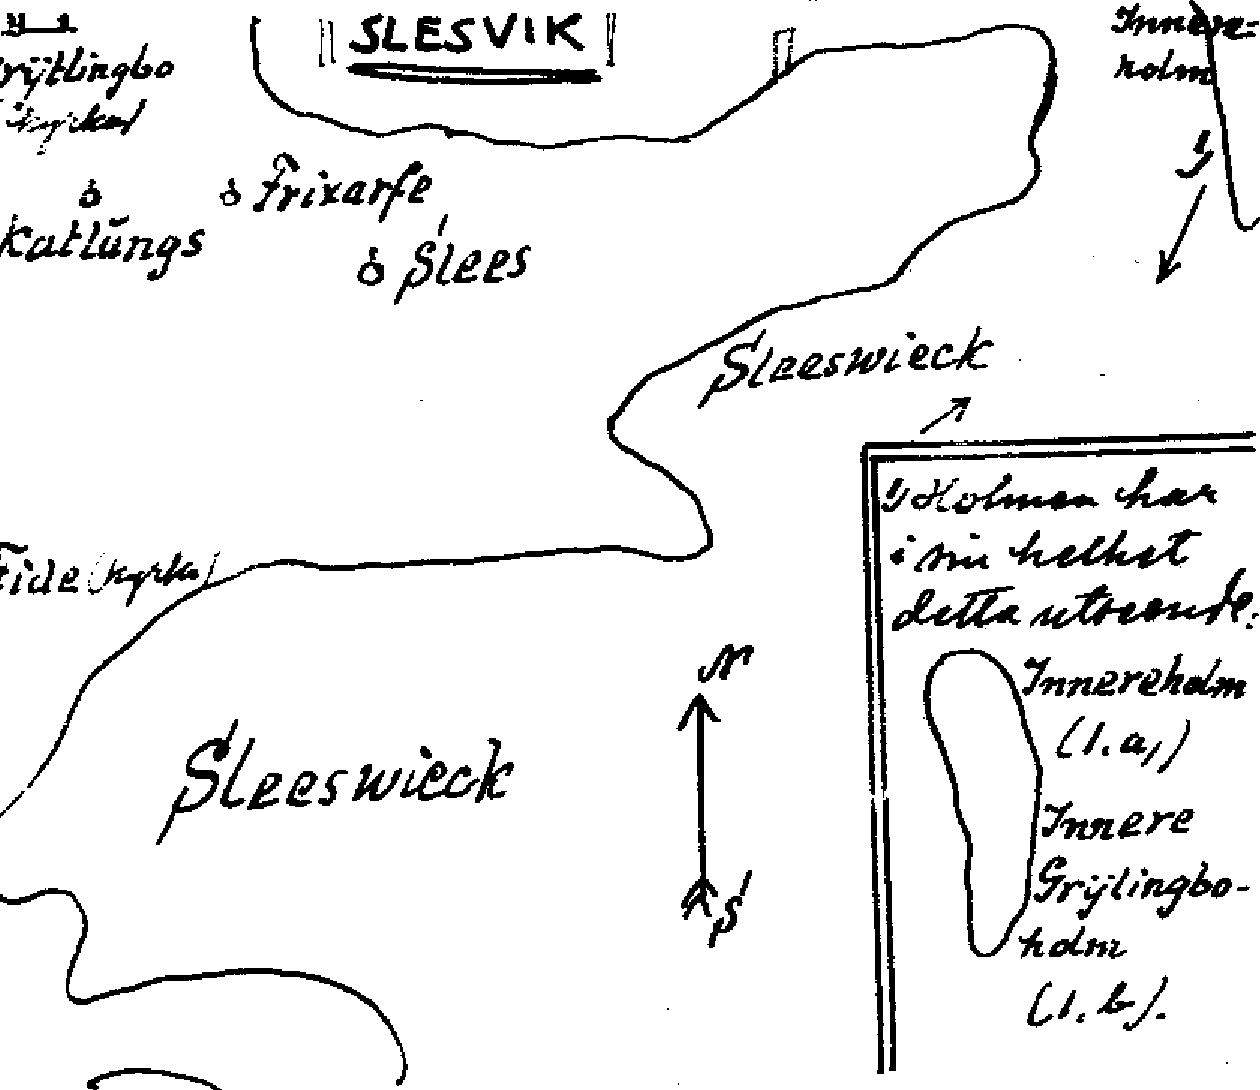 SLESVIK
Innere-
holm
rÿtlingbo
kyrka)
1)
Frixarfe
Katlŭngs
Slees
Sleeswieck
1) Holmen har
i sin helhet
detta utseende:
Fide (kyrka)
N
Innereholm
(1.a,)
Sleeswieck
Innere
Grÿlingbo-
holm
S
(1.b).